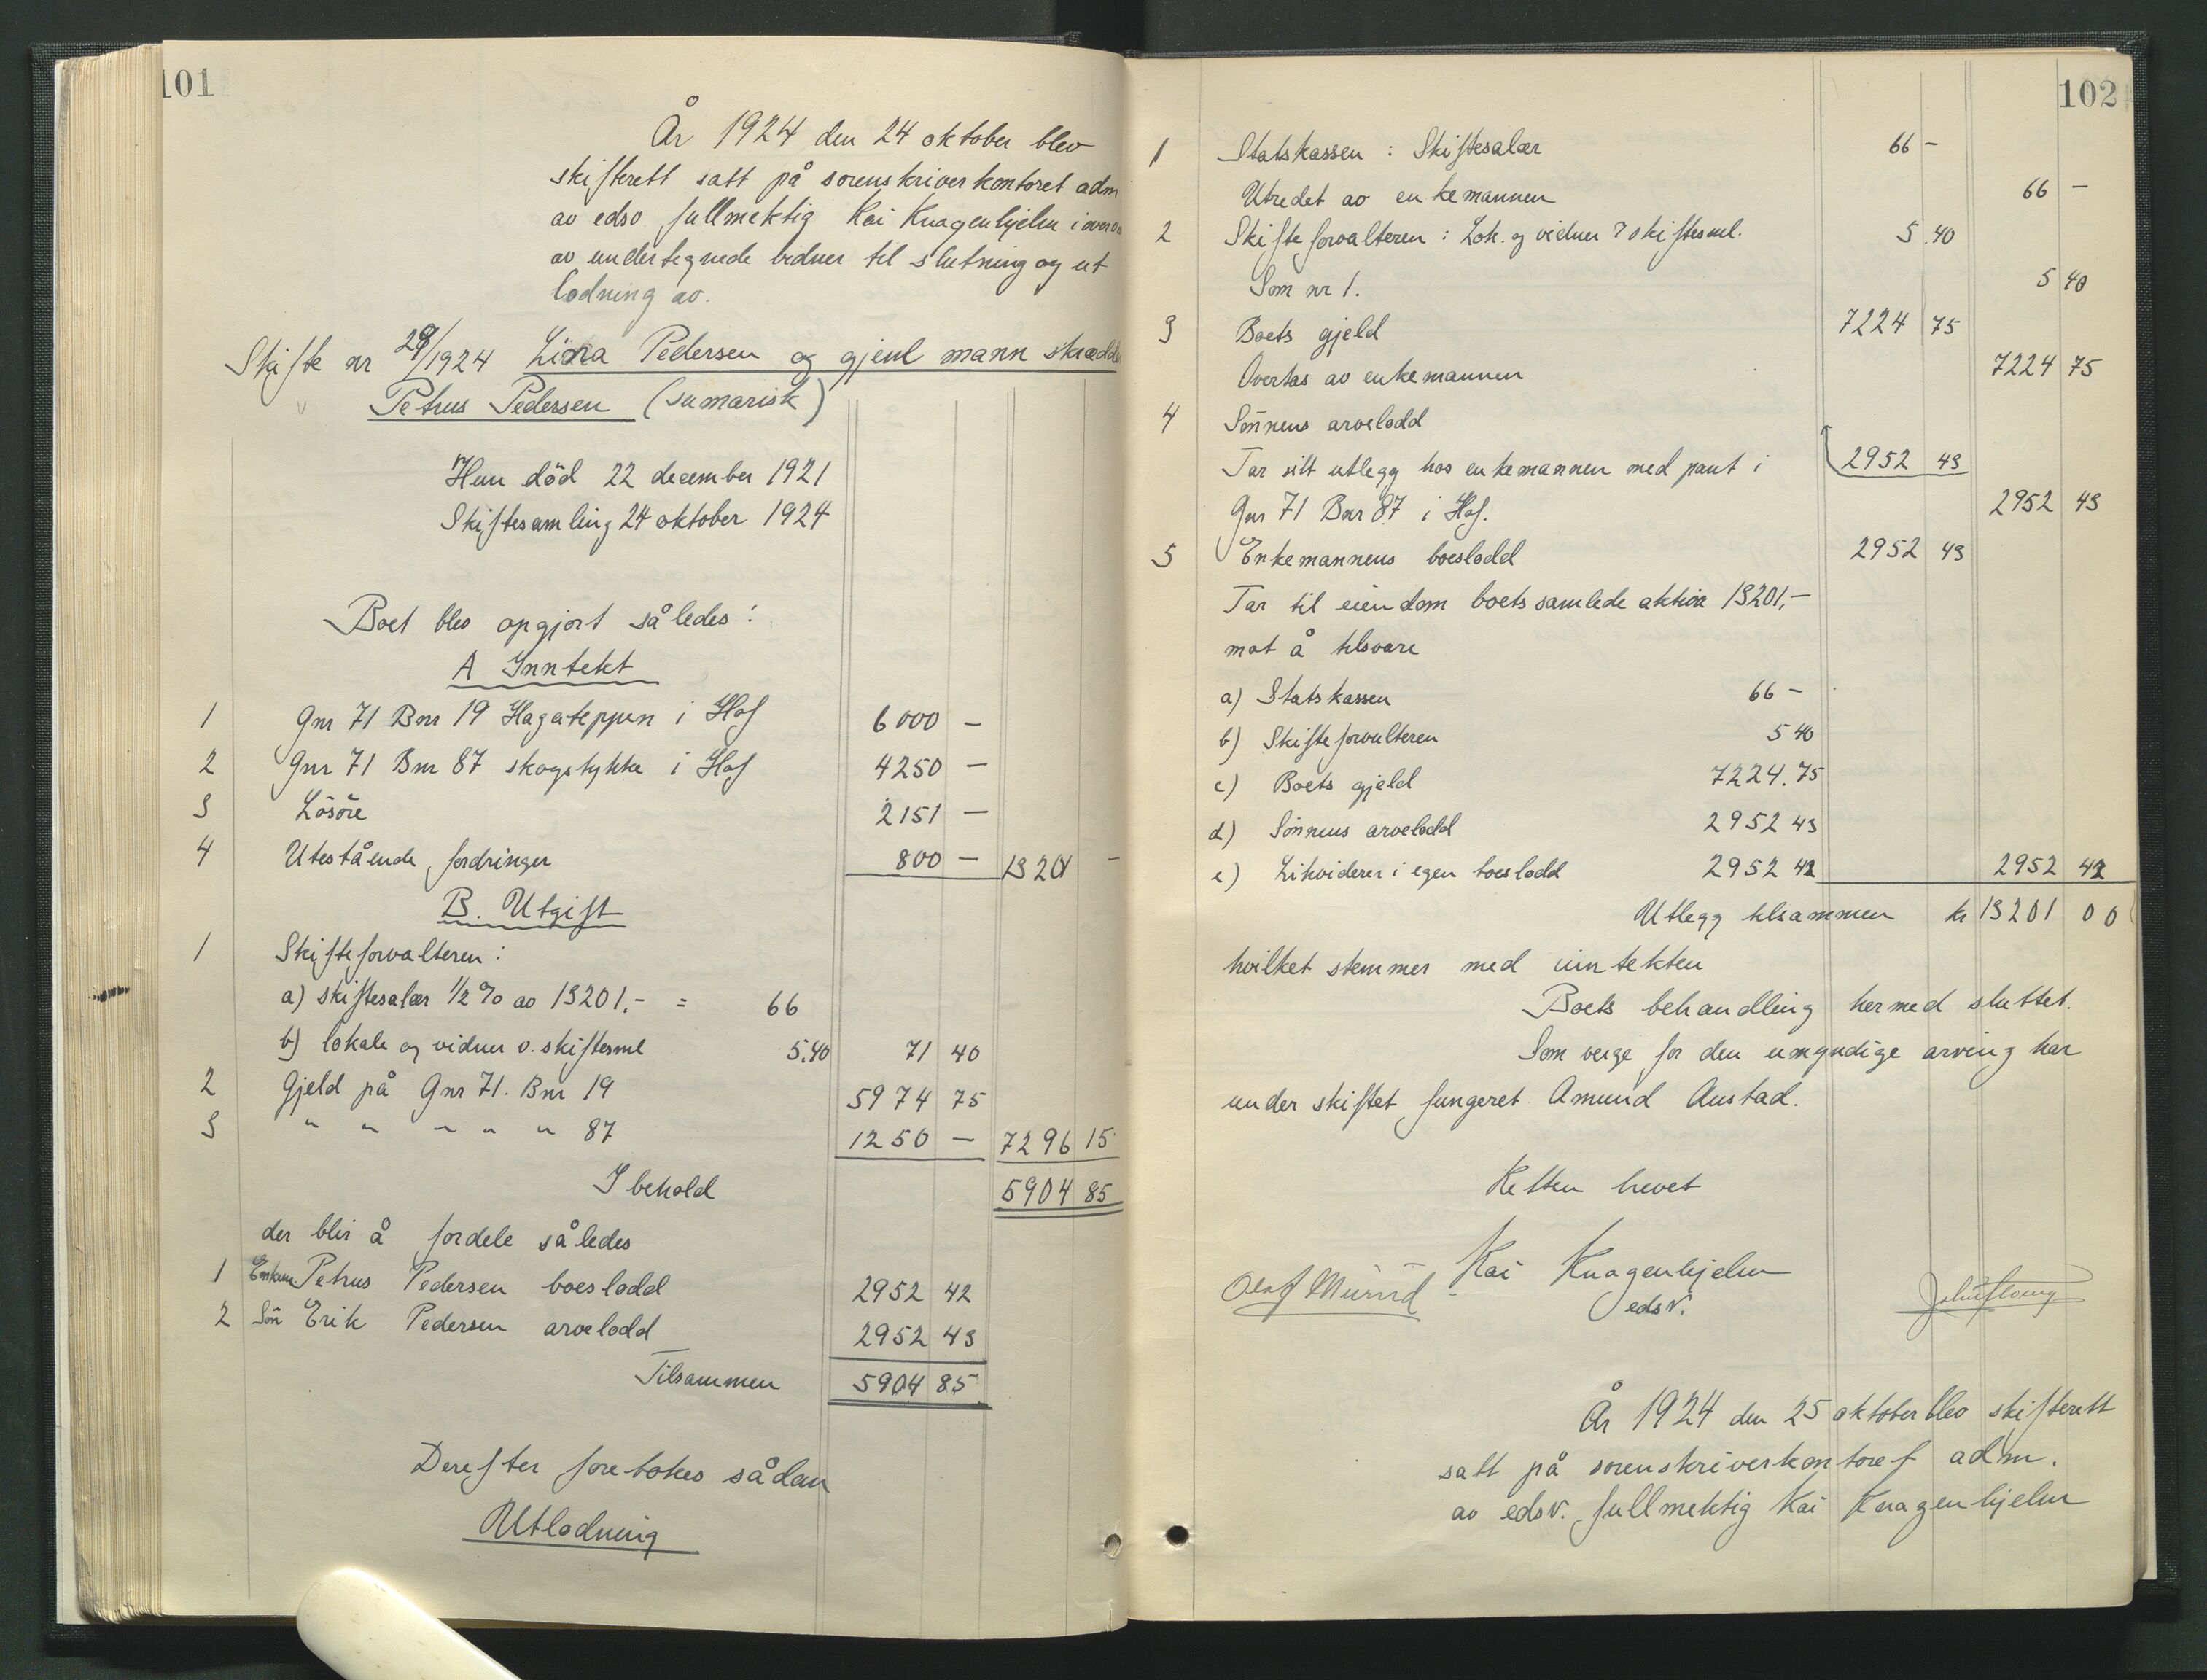 101
År 1924 den 24 oktober blev
skifterett satt på sorenskriverkontoret adm
av edsv. fullmektig Kai Knagenhjelm i overv
av undertegnede vidner til slutning og ut
lodning av.
Skifte nr 29/1924 Lina Pedersen og gjenl mann skrædde
Petrus Pedersen (sumarisk)
Hun död 22 december 1921
Skiftesamling 24 oktober 1924
Boet blev opgjort således:
A Inntekt
1 Gnr 71 Bnr 19 Hagateppen i Hof 6000 –
2 Gnr 71 Bnr 87 skogstykke i Hof 4250 –
3 Lösöre 2151 –
4 Utestående fordringer 800 – 13201 –
B. Utgift
1 Skifteforvalteren:
a) skiftesalær 1/2 % av 13201.- = 66
b) lokale og vidner v. skiftesml 5.40 71 40
2 Gjeld på Gnr 71. Bnr 19 5974 75
3 " " " " " 87 1250 – 7296 15
I behold 5904 85
der blir å fordele således
1 Enkem Petrus Pedersen boeslodd 2952 42
2 Sön Erik Pedersen arvelodd 2952 43
Tilsammen 5904 85
Derefter foretokes sådan
Utlodning
102
1 Statskassen: Skiftesalær 66 –
Utredet av enkemannen 66 –
2 Skifteforvalteren: Lok. og vidner v skiftesml. 5.40
Som nr 1. 5 40
3 Boets gjeld 7224 75
Overtas av enkemannen 7224 75
4 Sönnens arvelodd
Tar sitt utlegg hos enkemannen med pant i 2952 43
Gnr 71 Bnr 87 i Hof. 2952 43
5 Enkemannens boeslodd 2952 43
Tar til eiendom boets samlede aktiva 13201,–
mot å tilsvare
a) Statskassen 66 –
b) Skifteforvalteren 5 40
c) Boets gjeld 7224.75
d) Sönnens arvelodd 2952 43
e) Likviderer i egen boeslodd 2952 42 2952 42
Utlegg tilsammen kr 13201 00
hvilket stemmer med inntekten
Boets behandling hermed sluttet.
Som verge for den umyndige arving har
under skiftet fungeret Amund Austad.
Retten hevet
Kai Knagenhjelm
Olaf
edsv.
År 1924 den 25 oktober blev skifterett
satt på sorenskriverkontoret adm.
av edsv. fullmektig Kai Knagenhjelm